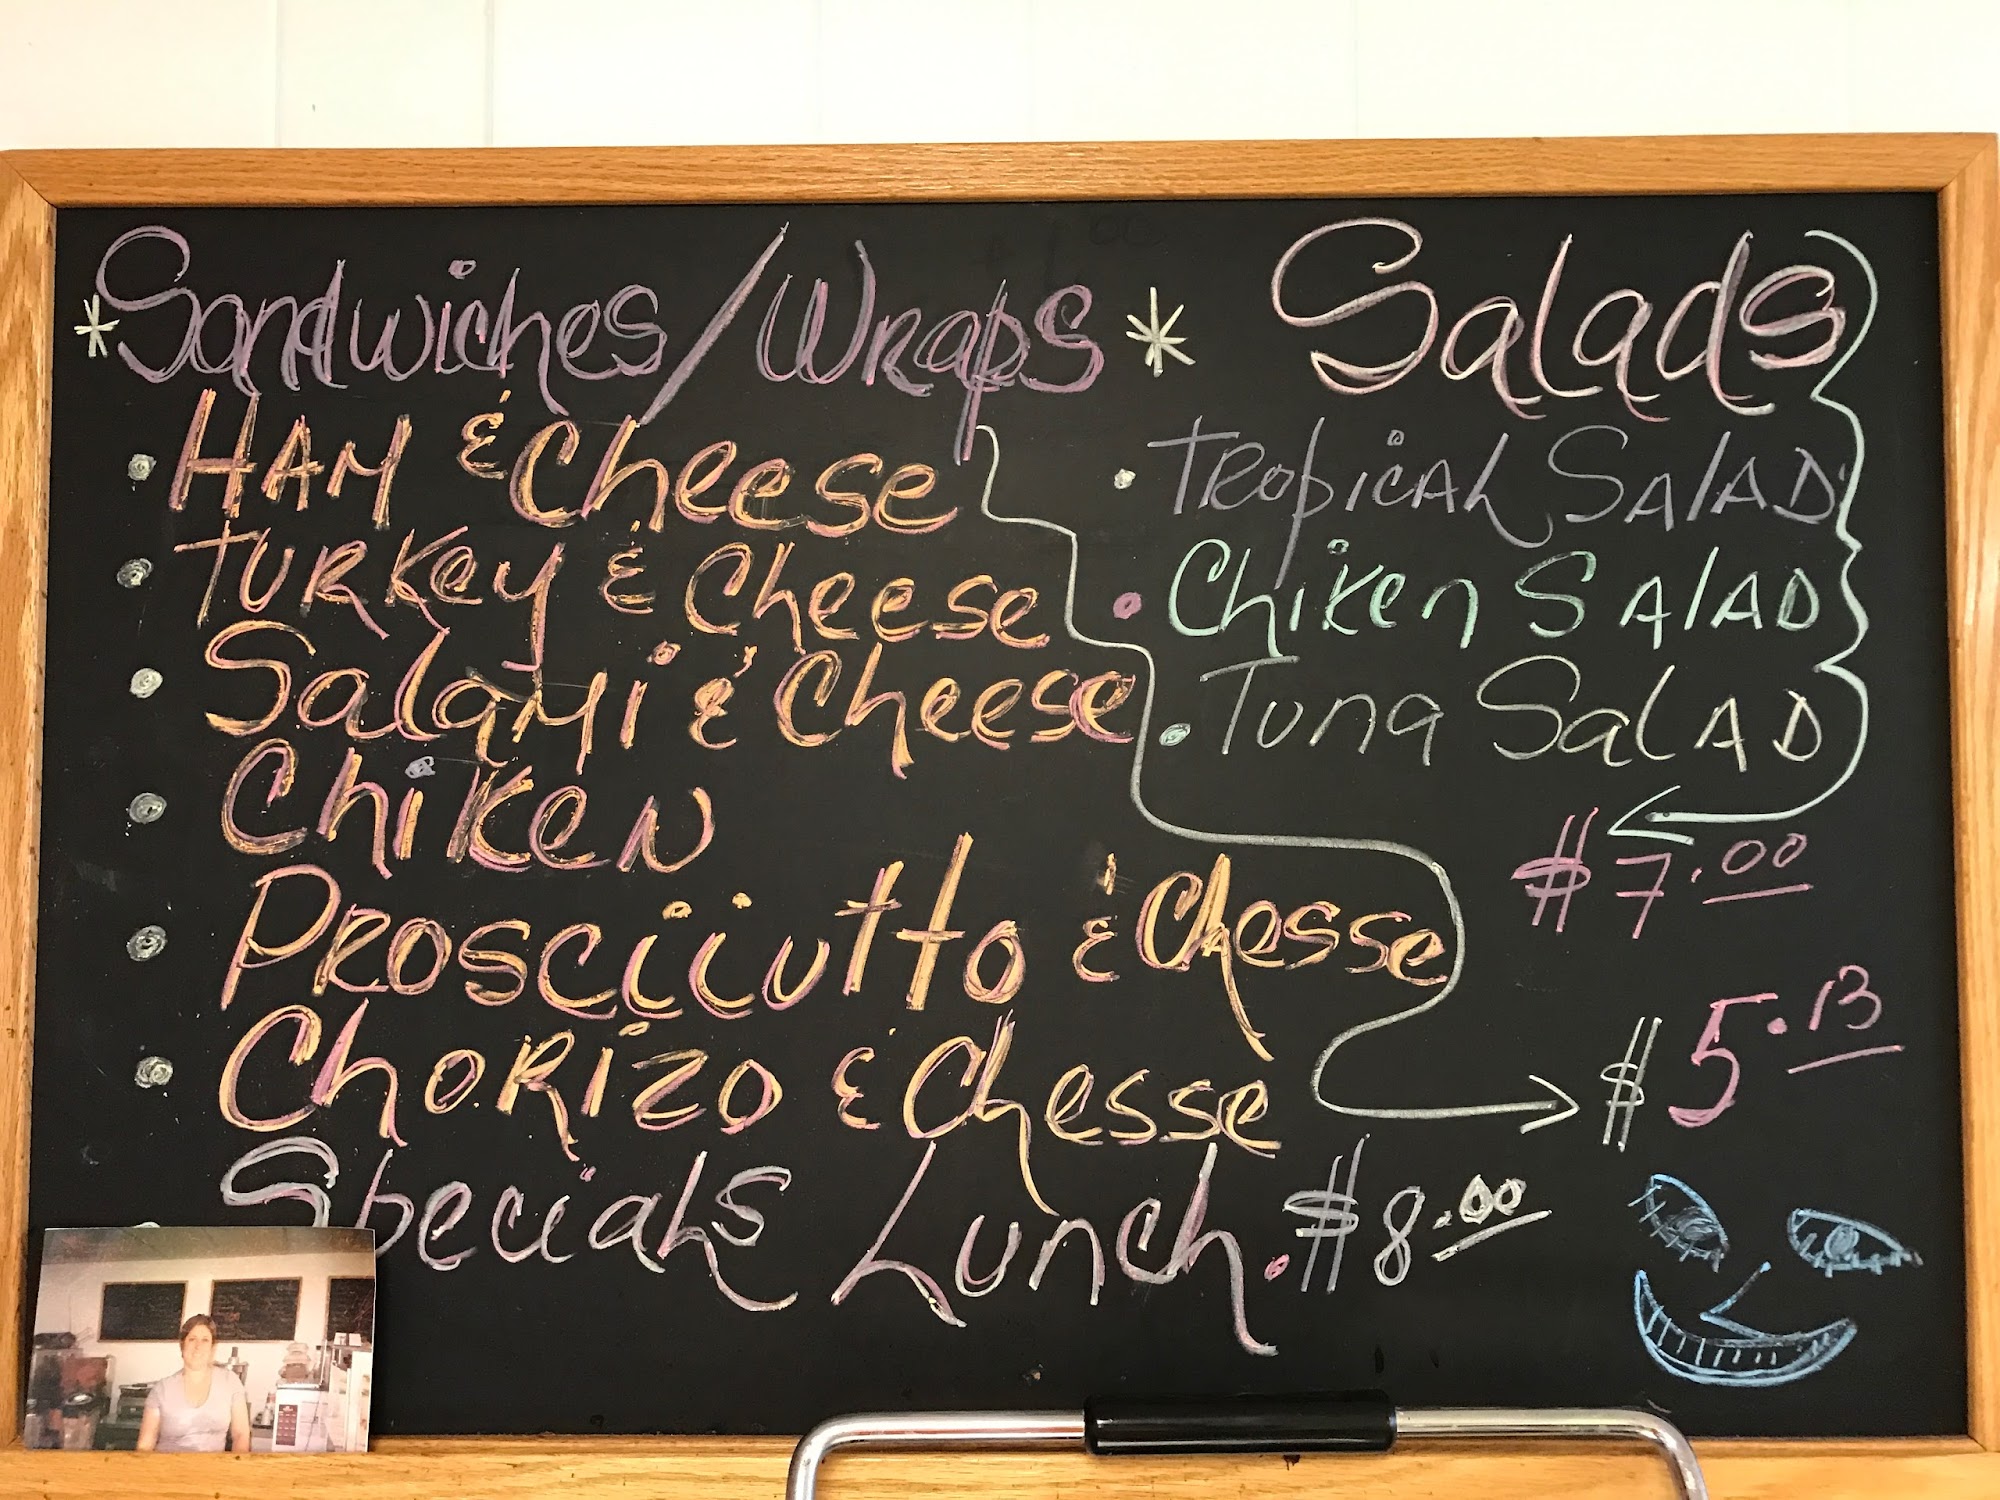 * Sandwiches/Wraps *
• HAM & Cheese
• Turkey & Cheese
• Salami & Cheese
• Chiken
• Prosciiutto & Chesse
• Chorizo & Chesse
$ 5.13
Specials Lunch. $8.00
Salads
• Tropical Salad
• Chiken Salad
• Tuna Salad
$7.00